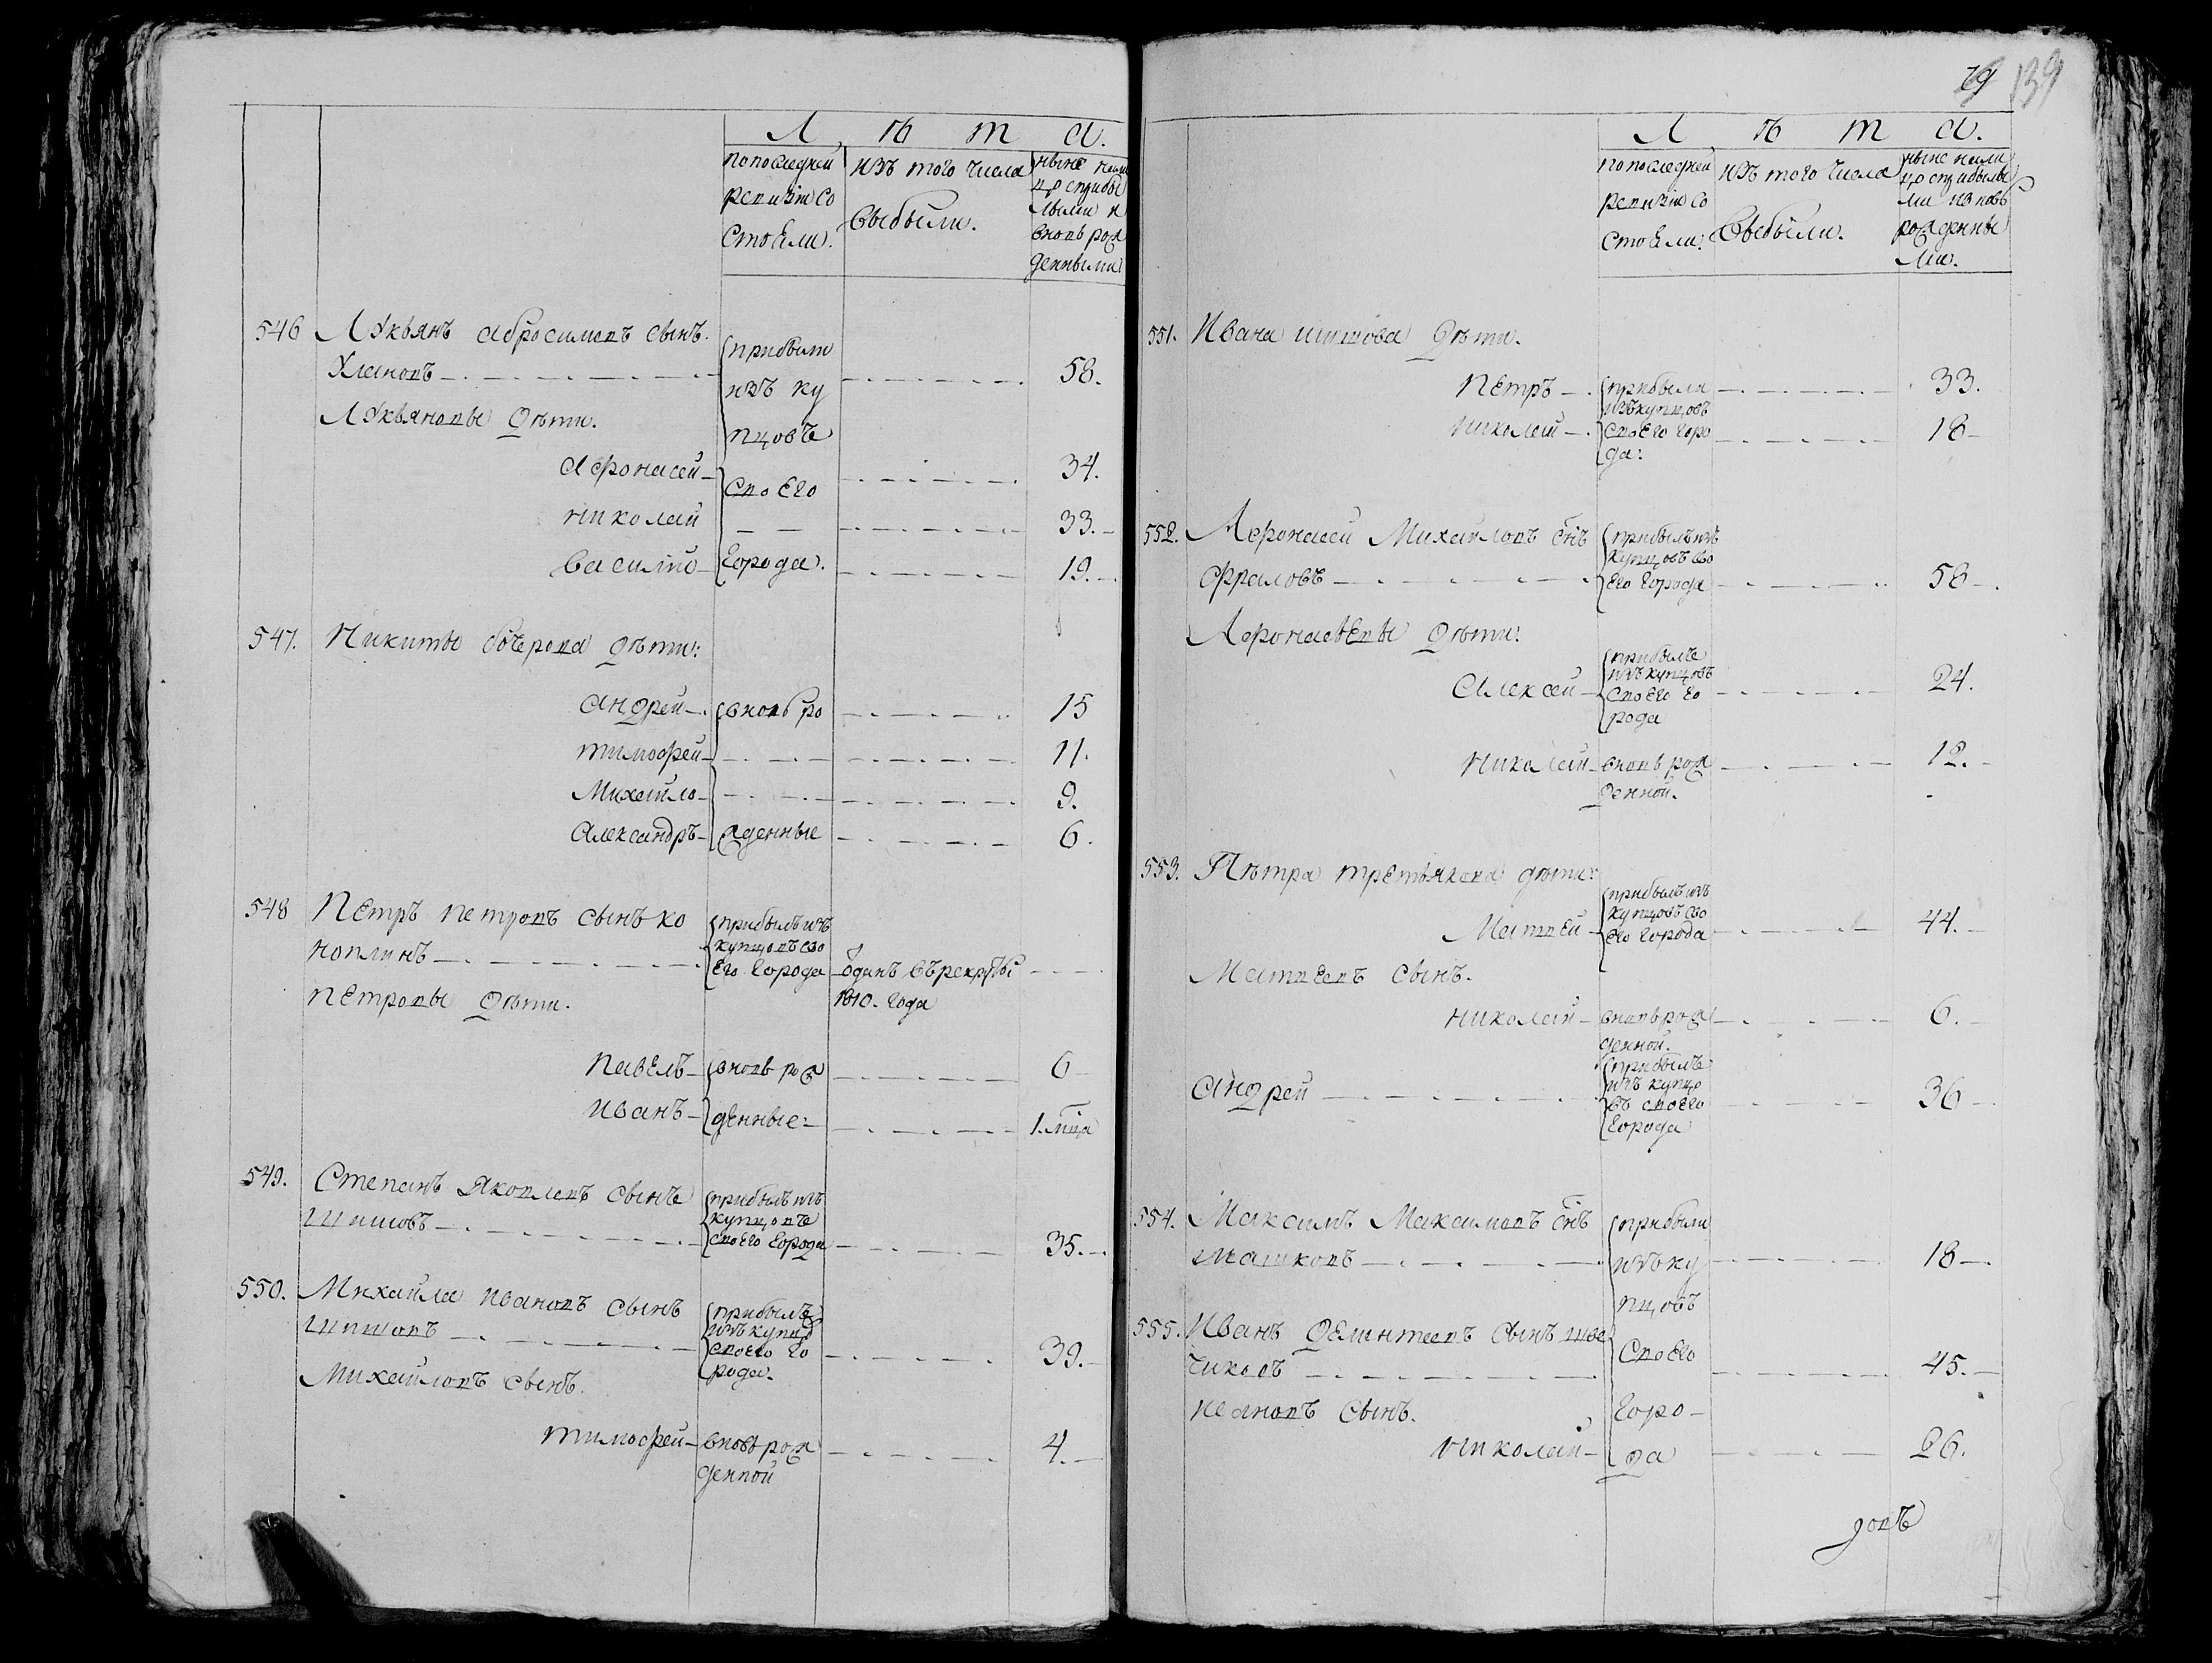 Л ѣ т а.
попоследней
ревизiи со
стоЕли.
изъ того числа
выбыли.
ныне нали
цо сприбы
лыми и
вновь рож
денными
546 Лукьянъ абросимовъ сынъ
Хлановъ
58.
прибыли
изъ ку
пцовъ
своего
города.
Лукьяновы дѣти.
афонасей 34.
николай 33.
василiй 19.
547. Никиты дѣти:
андрей вновь ро 15
тимофей 11.
Михайло 9.
александръ жденные 6.
548 Петръ петровъ сынъ ко
ноплинъ
прибылъ изъ
купцовъ сво
его города
одинъ въ рекруты
1810. года
петровы дѣти.
павелъ вновь рож 6
иванъ денные 1. мца
549. Степанъ яковлевъ сынъ
Шишовъ
прибылъ изъ
купцовъ
своего города
35.
550. Михайла ивановъ сынъ
Шишовъ
прибылъ
изъ купцо
своего го
рода.
39.
Михайловъ сынъ.
тимофей вновь рож 4.
денной
79 139
Л ѣ т а.
попоследней
ревизiи со
стоЕли.
изъ того числа
выбыли.
ныне нали
цо сприбылы
ми изновь
рожденны
ми.
551. Ивана шишова дѣти.
петръ прибыли 33.
изъ купцовъ
николай своего горо 18
да.
552. Афонасей Михайловъ снъ
фраловъ
прибылъ изъ
купцовъ сво
его города
58
Афонасьевы дѣти:
алексей
прибылъ
изъ купцовъ
своего го
рода
24.
николай вновь рож 12.
денной.
553. Пѣтра третьякова дѣти:
Матвей
прибылъ изъ
купцовъ сво
его города
44.
Матвеевъ сынъ.
николай вновь рож 6.
денной.
андрей
прибылъ
изъ купцо
въ своего
города
36
554. Максимъ Максимовъ снъ
Машковъ 18
прибыли
изъ ку
пцовъ
своего
горо
да
555. Иванъ дементеевъ сынъ
чиковъ 45.
ивановъ сынъ.
николай 26.